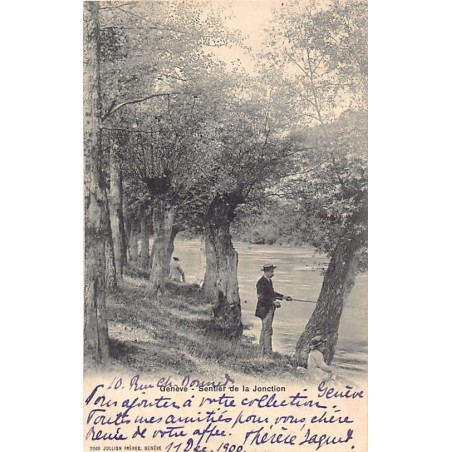 10. Rue Ch. Bonnet
Genève - Sentier de la Jonction
Genève
Vous ajouter à votre collection.
Toutes mes amitiés pour vous, chère
Renée de votre affec. Thérèse Jaquet
2049 JULLIEN FRÈRES, GENÈVE
11 Déc. 1900.